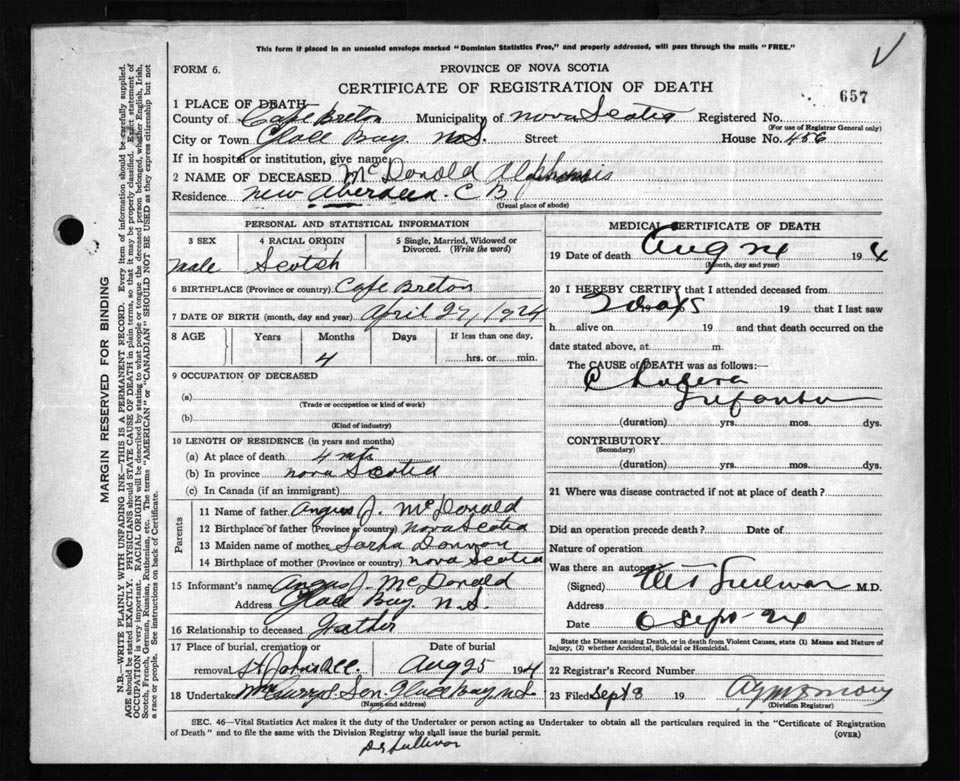 This form if placed in an unsealed envelope marked "Dominion Statistics Free," and properly addressed, will pass through the mails "FREE."
FORM 6.
PROVINCE OF NOVA SCOTIA
CERTIFICATE OF REGISTRATION OF DEATH
657
1 PLACE OF DEATH
County of Cape Breton Municipality of Nova Scotia Registered No.
(For use of Registrar General only)
City or Town Glace Bay. N.S. Street House No. 456
If in hospital or institution, give name
2 NAME OF DECEASED McDonald
Residence New Aberdeen. C B
(Usual place of abode)
PERSONAL AND STATISTICAL INFORMATION
3 SEX 4 RACIAL ORIGIN 5 Single, Married, Widowed or Divorced. (Write the word)
male Scotch
6 BIRTHPLACE (Province or country) Cape Breton
7 DATE OF BIRTH (month, day and year) April 27, 1924
8 AGE Years Months Days If less than one day,
4 hrs. or min.
9 OCCUPATION OF DECEASED
(a)
(Trade or occupation or kind of work)
(b)
(Kind of industry)
10 LENGTH OF RESIDENCE (in years and months)
(a) At place of death 4 mts
(b) In province Nova Scotia
(c) In Canada (if an immigrant)
Parents
11 Name of father Angus J. McDonald
12 Birthplace of father (Province or country) Nova Scotia
13 Maiden name of mother
14 Birthplace of mother (Province or country) Nova Scotia
15 Informant's name Angus J. McDonald
Address Glace Bay. N.S.
16 Relationship to deceased Father
17 Place of burial, cremation or removal Date of burial
Aug 25 19
18 Undertaker Son. Glace Bay, N.S.
(Name and address)
MEDICAL CERTIFICATE OF DEATH
19 Date of death Aug 24 19 4
(Month, day and year)
20 I HEREBY CERTIFY that I attended deceased from
2 days 19 that I last saw
h alive on 19 and that death occurred on the
date stated above, at m.
The CAUSE of DEATH was as follows:—
Cholera
Infantum
(duration) yrs. mos. dys.
CONTRIBUTORY
(Secondary)
(duration) yrs. mos. dys.
21 Where was disease contracted if not at place of death?
Did an operation precede death? Date of
Nature of operation
Was there an autopsy
(Signed) M.D.
Address
Date 6 Sept - 24
State the Disease causing Death, or in death from Violent Causes, state (1) Means and Nature of Injury, (2) whether Accidental, Suicidal or Homicidal.
22 Registrar's Record Number
23 Filed Sept 8 19
(Division Registrar)
SEC. 46—Vital Statistics Act makes it the duty of the Undertaker or person acting as Undertaker to obtain all the particulars required in the "Certificate of Registration
of Death" and to file the same with the Division Registrar who shall issue the burial permit.
(OVER)
Dr Sullivan
MARGIN RESERVED FOR BINDING
N.B.—WRITE PLAINLY WITH UNFADING INK—THIS IS A PERMANENT RECORD. Every item of information should be carefully supplied.
AGE should be stated EXACTLY. PHYSICIANS should STATE CAUSE OF DEATH in plain terms, so that it may be properly classified. Exact statement of
OCCUPATION is very important. RACIAL ORIGIN will be described by stating to what people or tongue the deceased person belonged, whether English, Irish,
Scotch, French, German, Russian, Ruthenian, etc. The terms "AMERICAN" or "CANADIAN" SHOULD NOT BE USED as they express citizenship but not
a race or people. See instructions on back of Certificate.